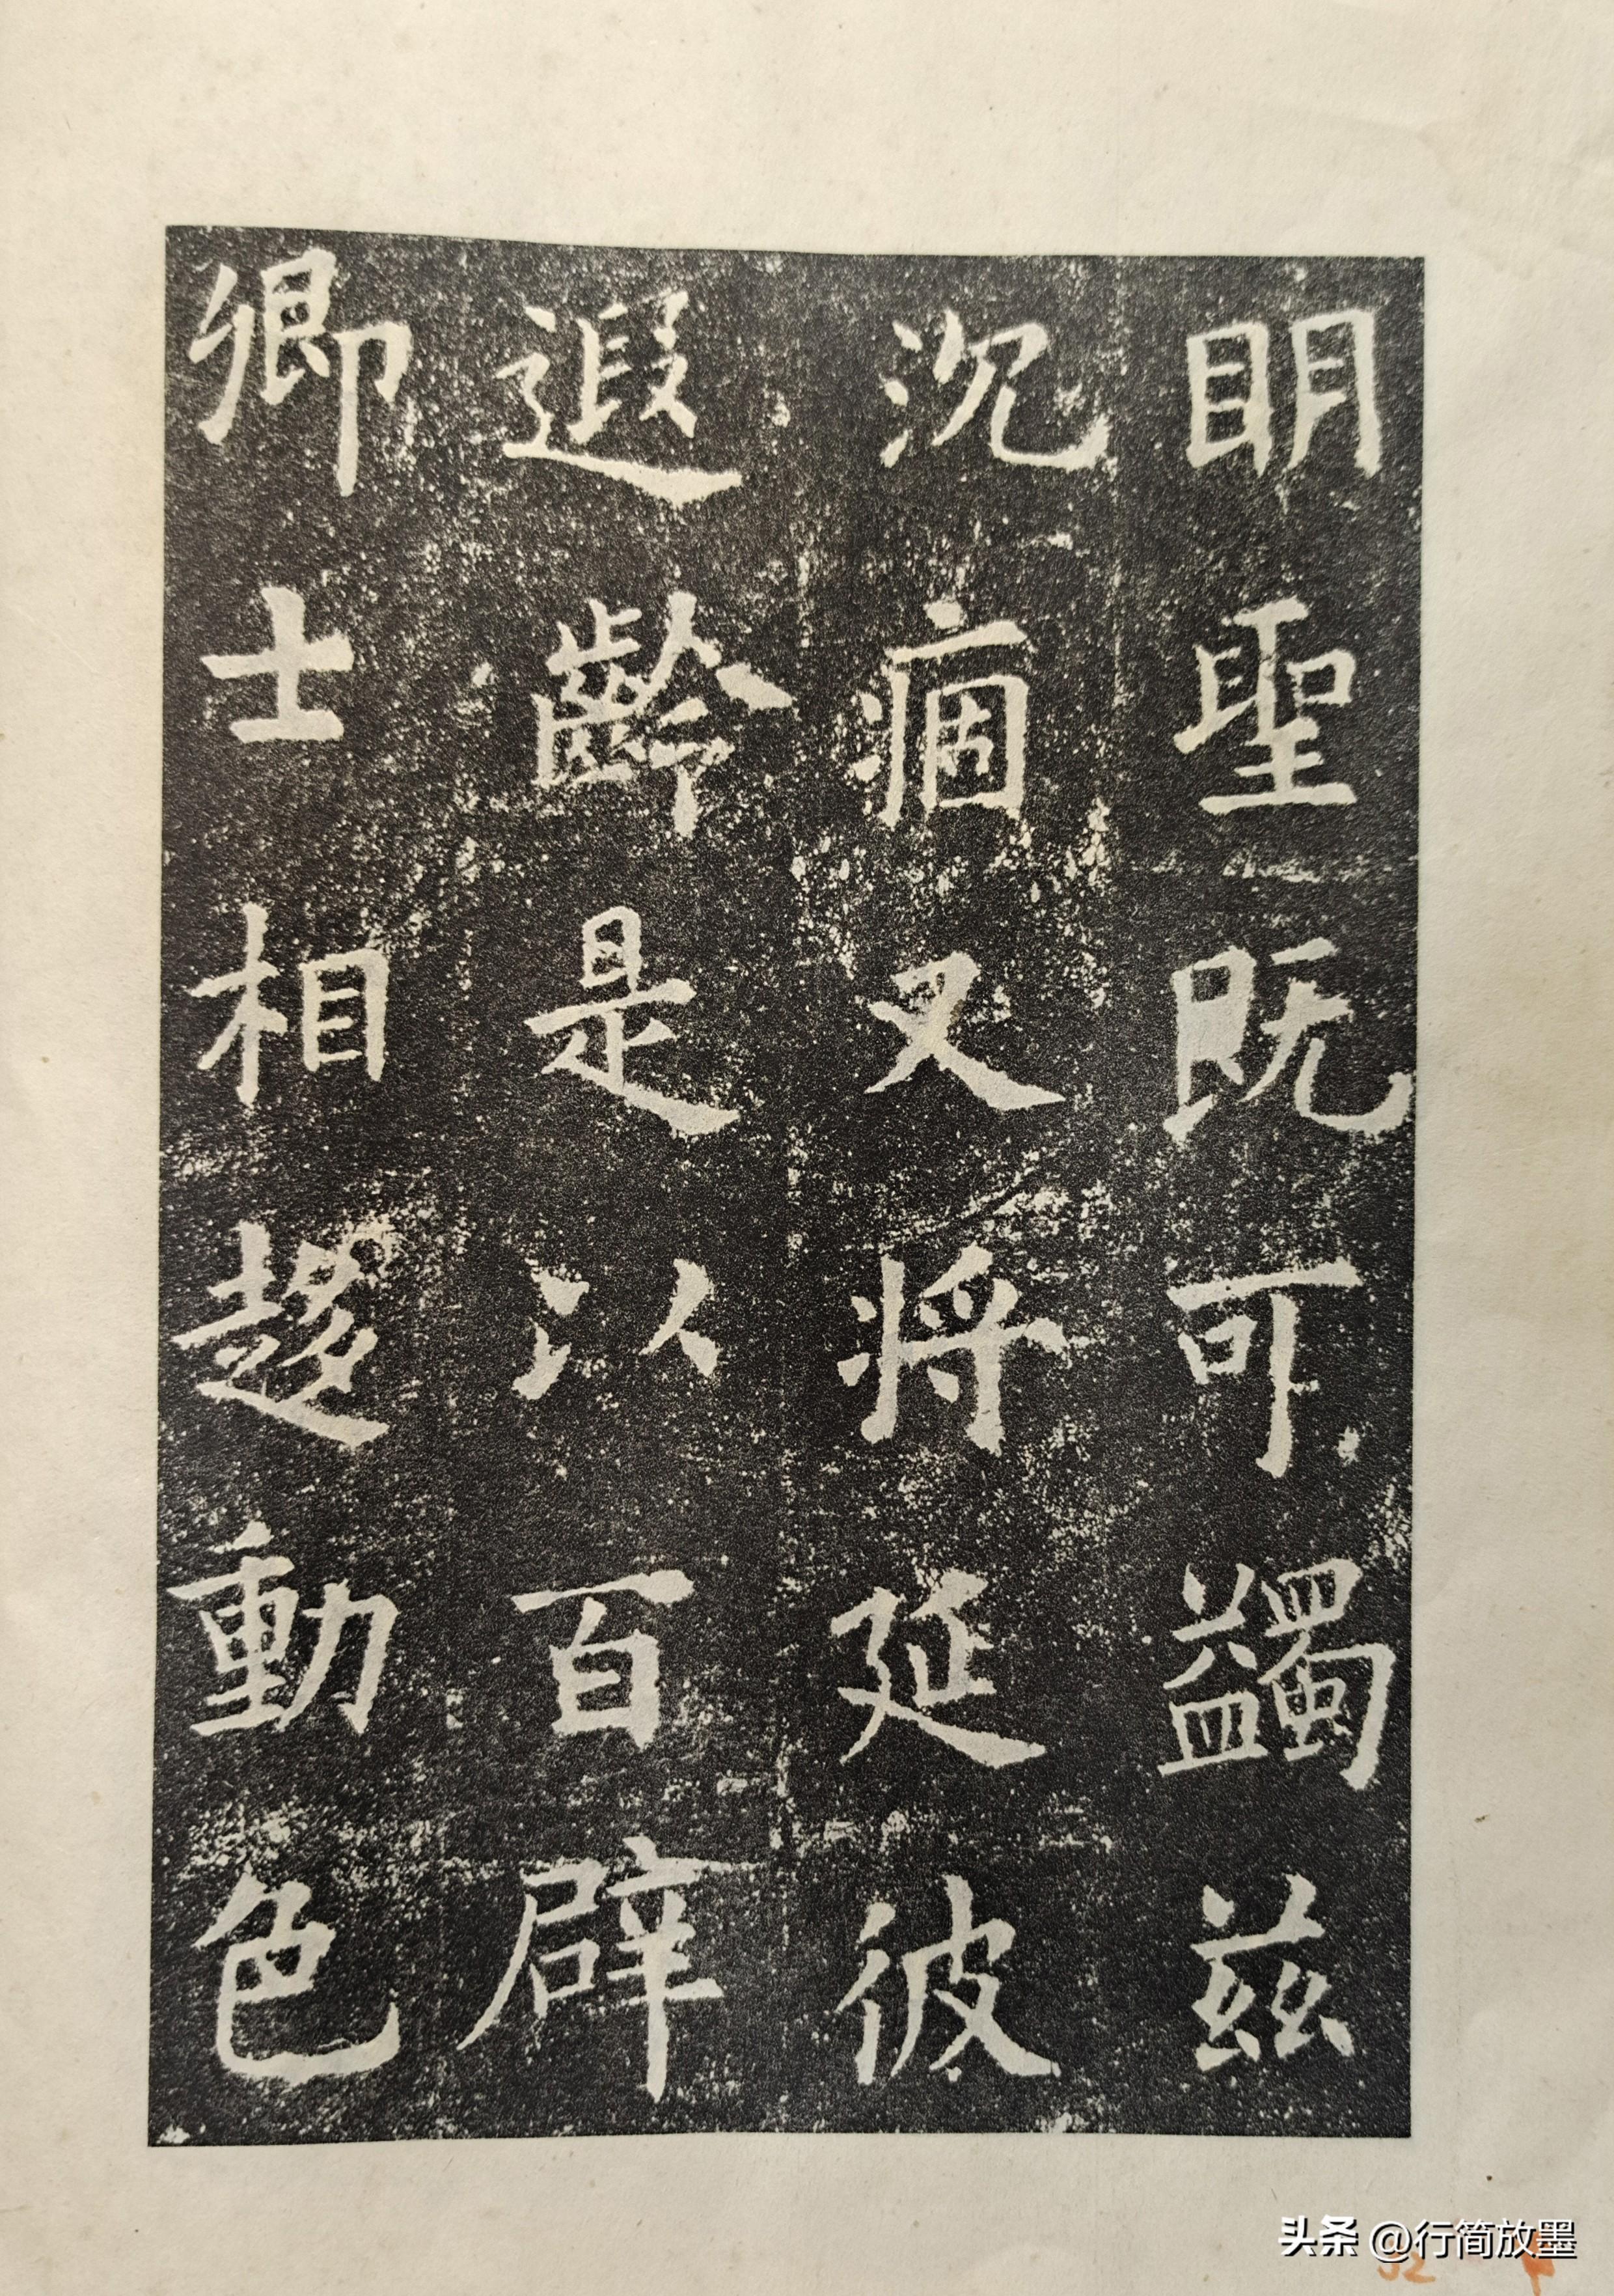 明聖既可蠲兹
沉痼又将延彼
遐齡是以百辟
卿士相趍動色
头条 @行简放墨